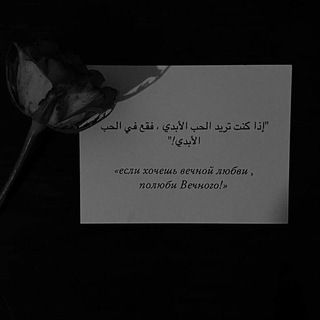 "إذا كنت تريد الحب الأبدي ، فقع في الحب
الأبدي!"
«если хочешь вечной любви ,
полюби Вечного!»